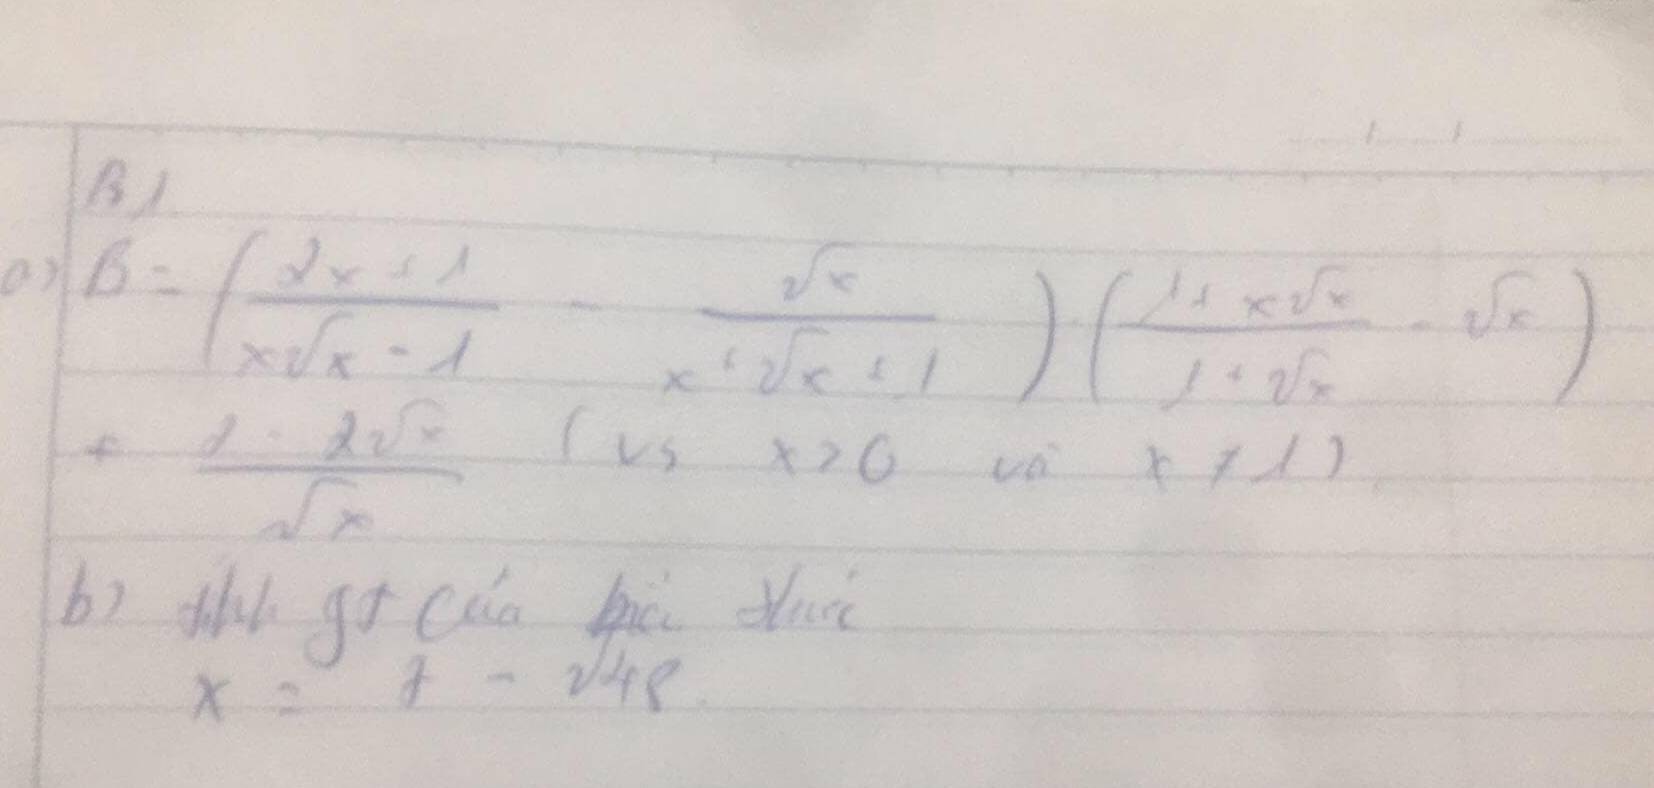 B1
a) B = ( (2x + 1)/(x√x - 1) - √x/(x + √x + 1) ) · ( (1 + x√x)/(1 + √x) - √x )
+ (2 - 2√x)/√x (vs x > 0 và x ≠ 1)
b) tính gt của biểu thức
x = 7 - √48.